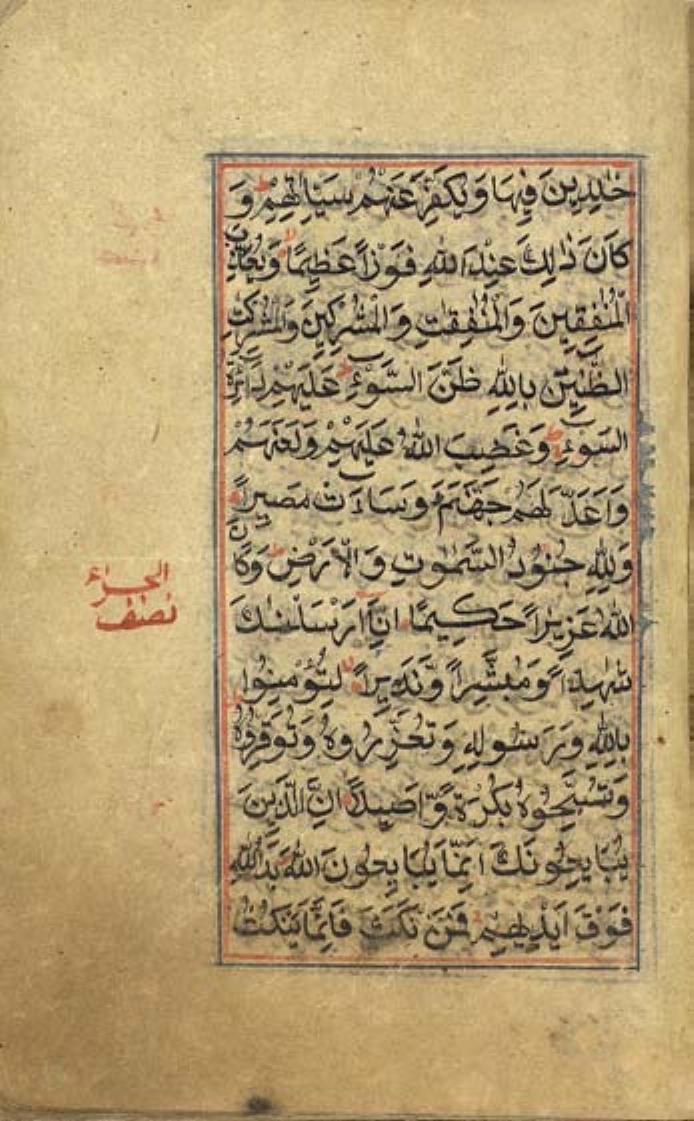 خٰلِدِينَ فِيهَا وَيُكَفِّرَ عَنْهُمْ سَيِّاٰتِهِمْ ط وَ
كَانَ ذٰلِكَ عِنْدَ اللهِ فَوْزًا عَظِيمًا وَيُعَذِّبَ
الْمُنٰفِقِينَ وَالْمُنٰفِقٰتِ وَالْمُشْرِكِينَ وَالْمُشْرِكٰتِ
الظَّانِّينَ بِاللهِ ظَنَّ السَّوْءِ ط عَلَيْهِمْ دَائِرَةُ
السَّوْءِ وَغَضِبَ اللهُ عَلَيْهِمْ وَلَعَنَهُمْ
وَاَعَدَّ لَهُمْ جَهَنَّمَ وَسَاءَتْ مَصِيرًا
وَلِلّٰهِ جُنُودُ السَّمٰوٰتِ وَالْاَرْضِ ط وَكَانَ
اللهُ عَزِيزًا حَكِيمًا اِنَّا اَرْسَلْنٰكَ
شَاهِدًا وَمُبَشِّرًا وَنَذِيرًا لِتُؤْمِنُوا
بِاللهِ وَرَسُولِهِ وَتُعَزِّرُوهُ وَتُوَقِّرُوهُ
وَتُسَبِّحُوهُ بُكْرَةً وَّاَصِيلًا اِنَّ الَّذِينَ
يُبَايِعُونَكَ اِنَّمَا يُبَايِعُونَ اللهَ يَدُ اللهِ
فَوْقَ اَيْدِيهِمْ فَمَنْ نَكَثَ فَاِنَّمَا يَنْكُثُ
الجزاء
نصف